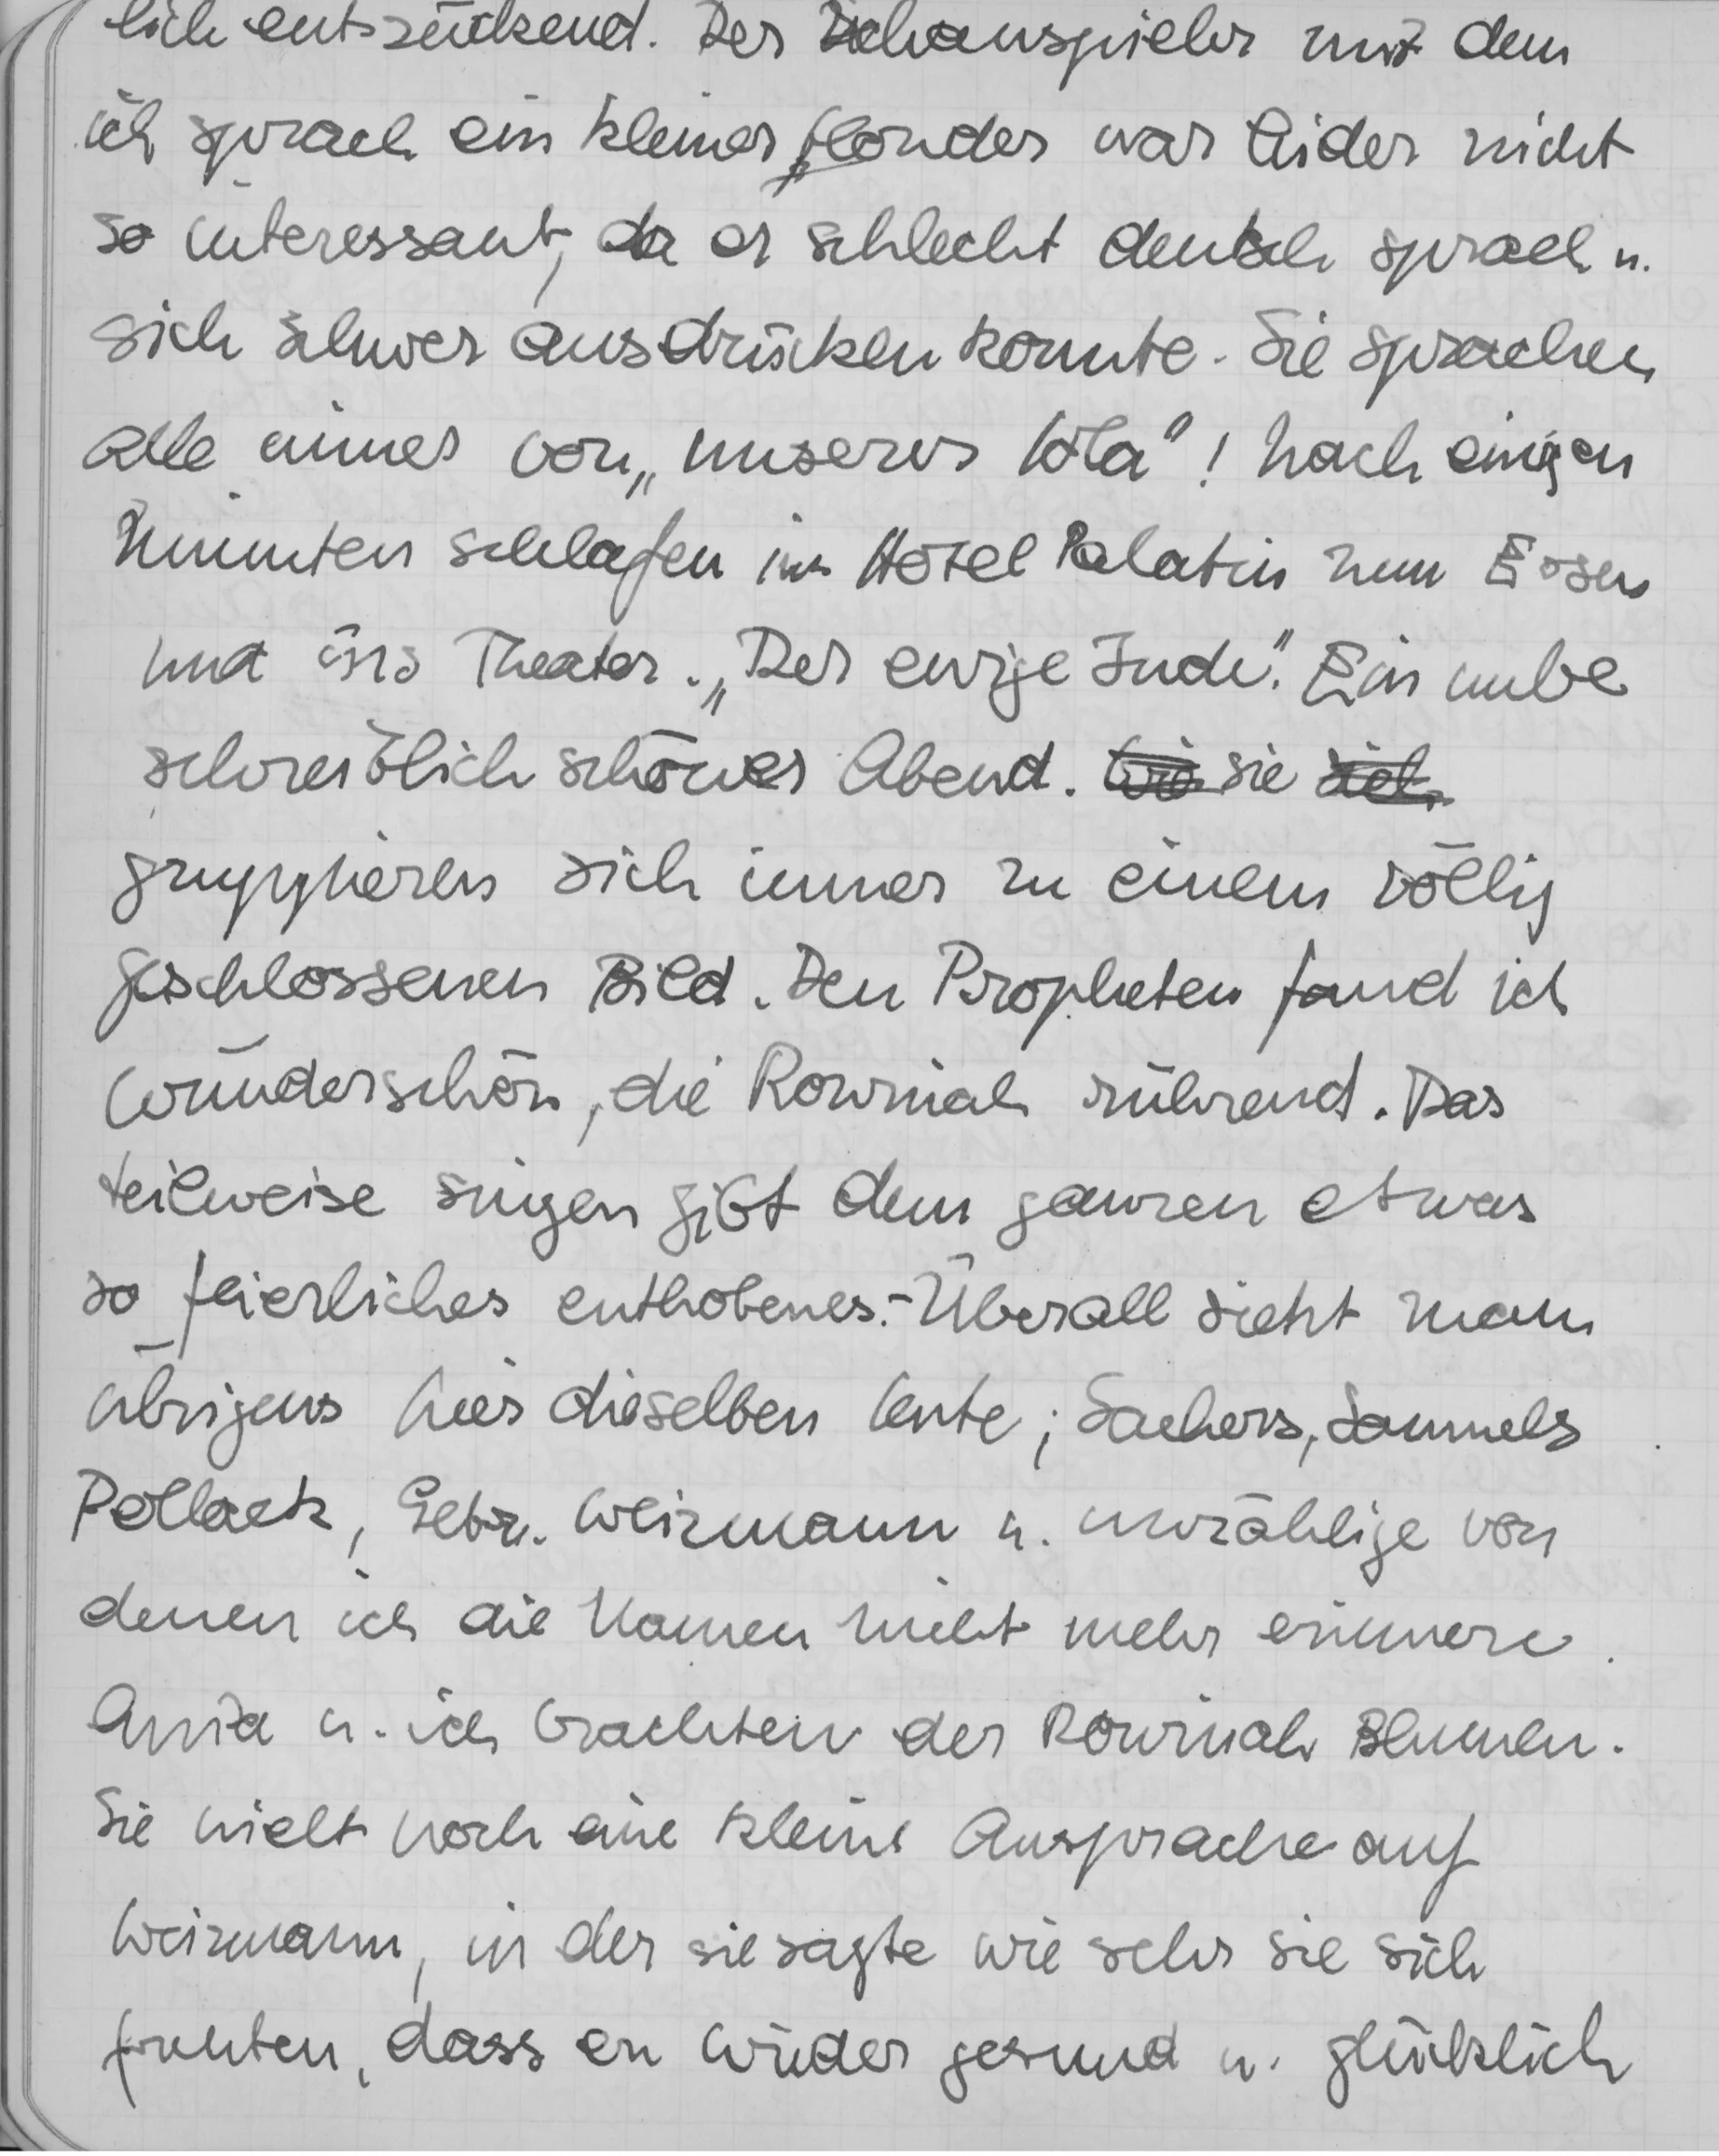 lich entzückend. Der Schauspieler mit dem
ich sprach ein kleiner blonder war leider nicht
so interessant, da er schlecht deutsch sprach u.
sich schwer ausdrücken konnte. Sie sprachen
alle immer von „unserer Lola"! Nach einigen
Minuten schlafen im Hotel Palatin zum Essen
und ins Theater. „Der ewige Jude". Ein unbe
schreiblich schöner Abend. Wie sie sich
gruppieren sich immer zu einem völlig
geschlossenen Bild. Den Propheten fand ich
wunderschön, die Rowinah rührend. Das
teilweise singen gibt dem ganzen etwas
so feierliches enthobenes.- Überall sieht man
übrigens hier dieselben Leute; Sachers, Samuels
Pollack, Gebr. Weizmann u. unzählige von
denen ich die Namen nicht mehr erinnere.
Anita u. ich brachten der Rowinah Blumen.
Sie hielt noch eine kleine Ansprache auf
Weizmann, in der sie sagte wie sehr sie sich
freuten, dass er wieder gesund u. glücklich